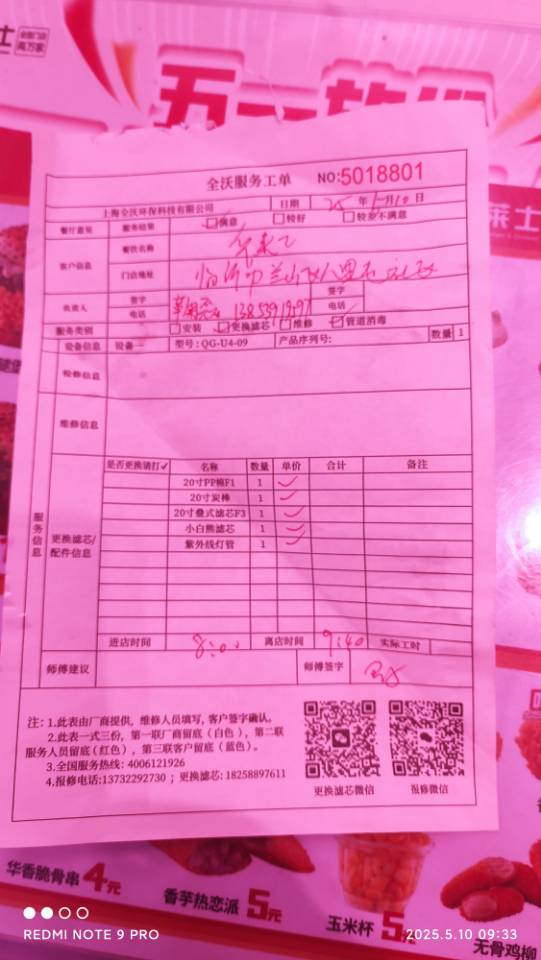 士
五一
莱士
全沃服务工单 NO:5018801
上海全沃环保科技有限公司 日期 25 年 5 月 10 日
服务结果 满意 较好 较差不满意
客户信息
餐饮名称 华莱士
门店地址
负责人 签字 签字
电话 电话
服务类别 安装 更换滤芯 维修 管道消毒
设备信息 设备一 型号:QG-U4-09 产品序列号: 数量 1
检修信息
维修信息
服务信息
更换滤芯/配件信息
是否更换请打✓ 名称 数量 单价 合计 备注
20寸PP棉F1 1 ✓
20寸炭棒 1 ✓
20寸叠式滤芯F3 1 ✓
小白熊滤芯 1 ✓
紫外线灯管 1 ✓
进店时间 8:00 离店时间 9:40 实际工时
师傅建议 师傅签字
注：1.此表由厂商提供，维修人员填写，客户签字确认。
2.此表一式三份，第一联厂商留底（白色），第二联
服务人员留底（红色），第三联客户留底（蓝色）。
3.全国服务热线: 4006121926
4.报修电话:13732292730；更换滤芯: 18258897611
更换滤芯微信 报修微信
华香脆骨串 4元
香芋热恋派 5元
玉米杯 5元
无骨鸡柳
REDMI NOTE 9 PRO 2025.5.10 09:33